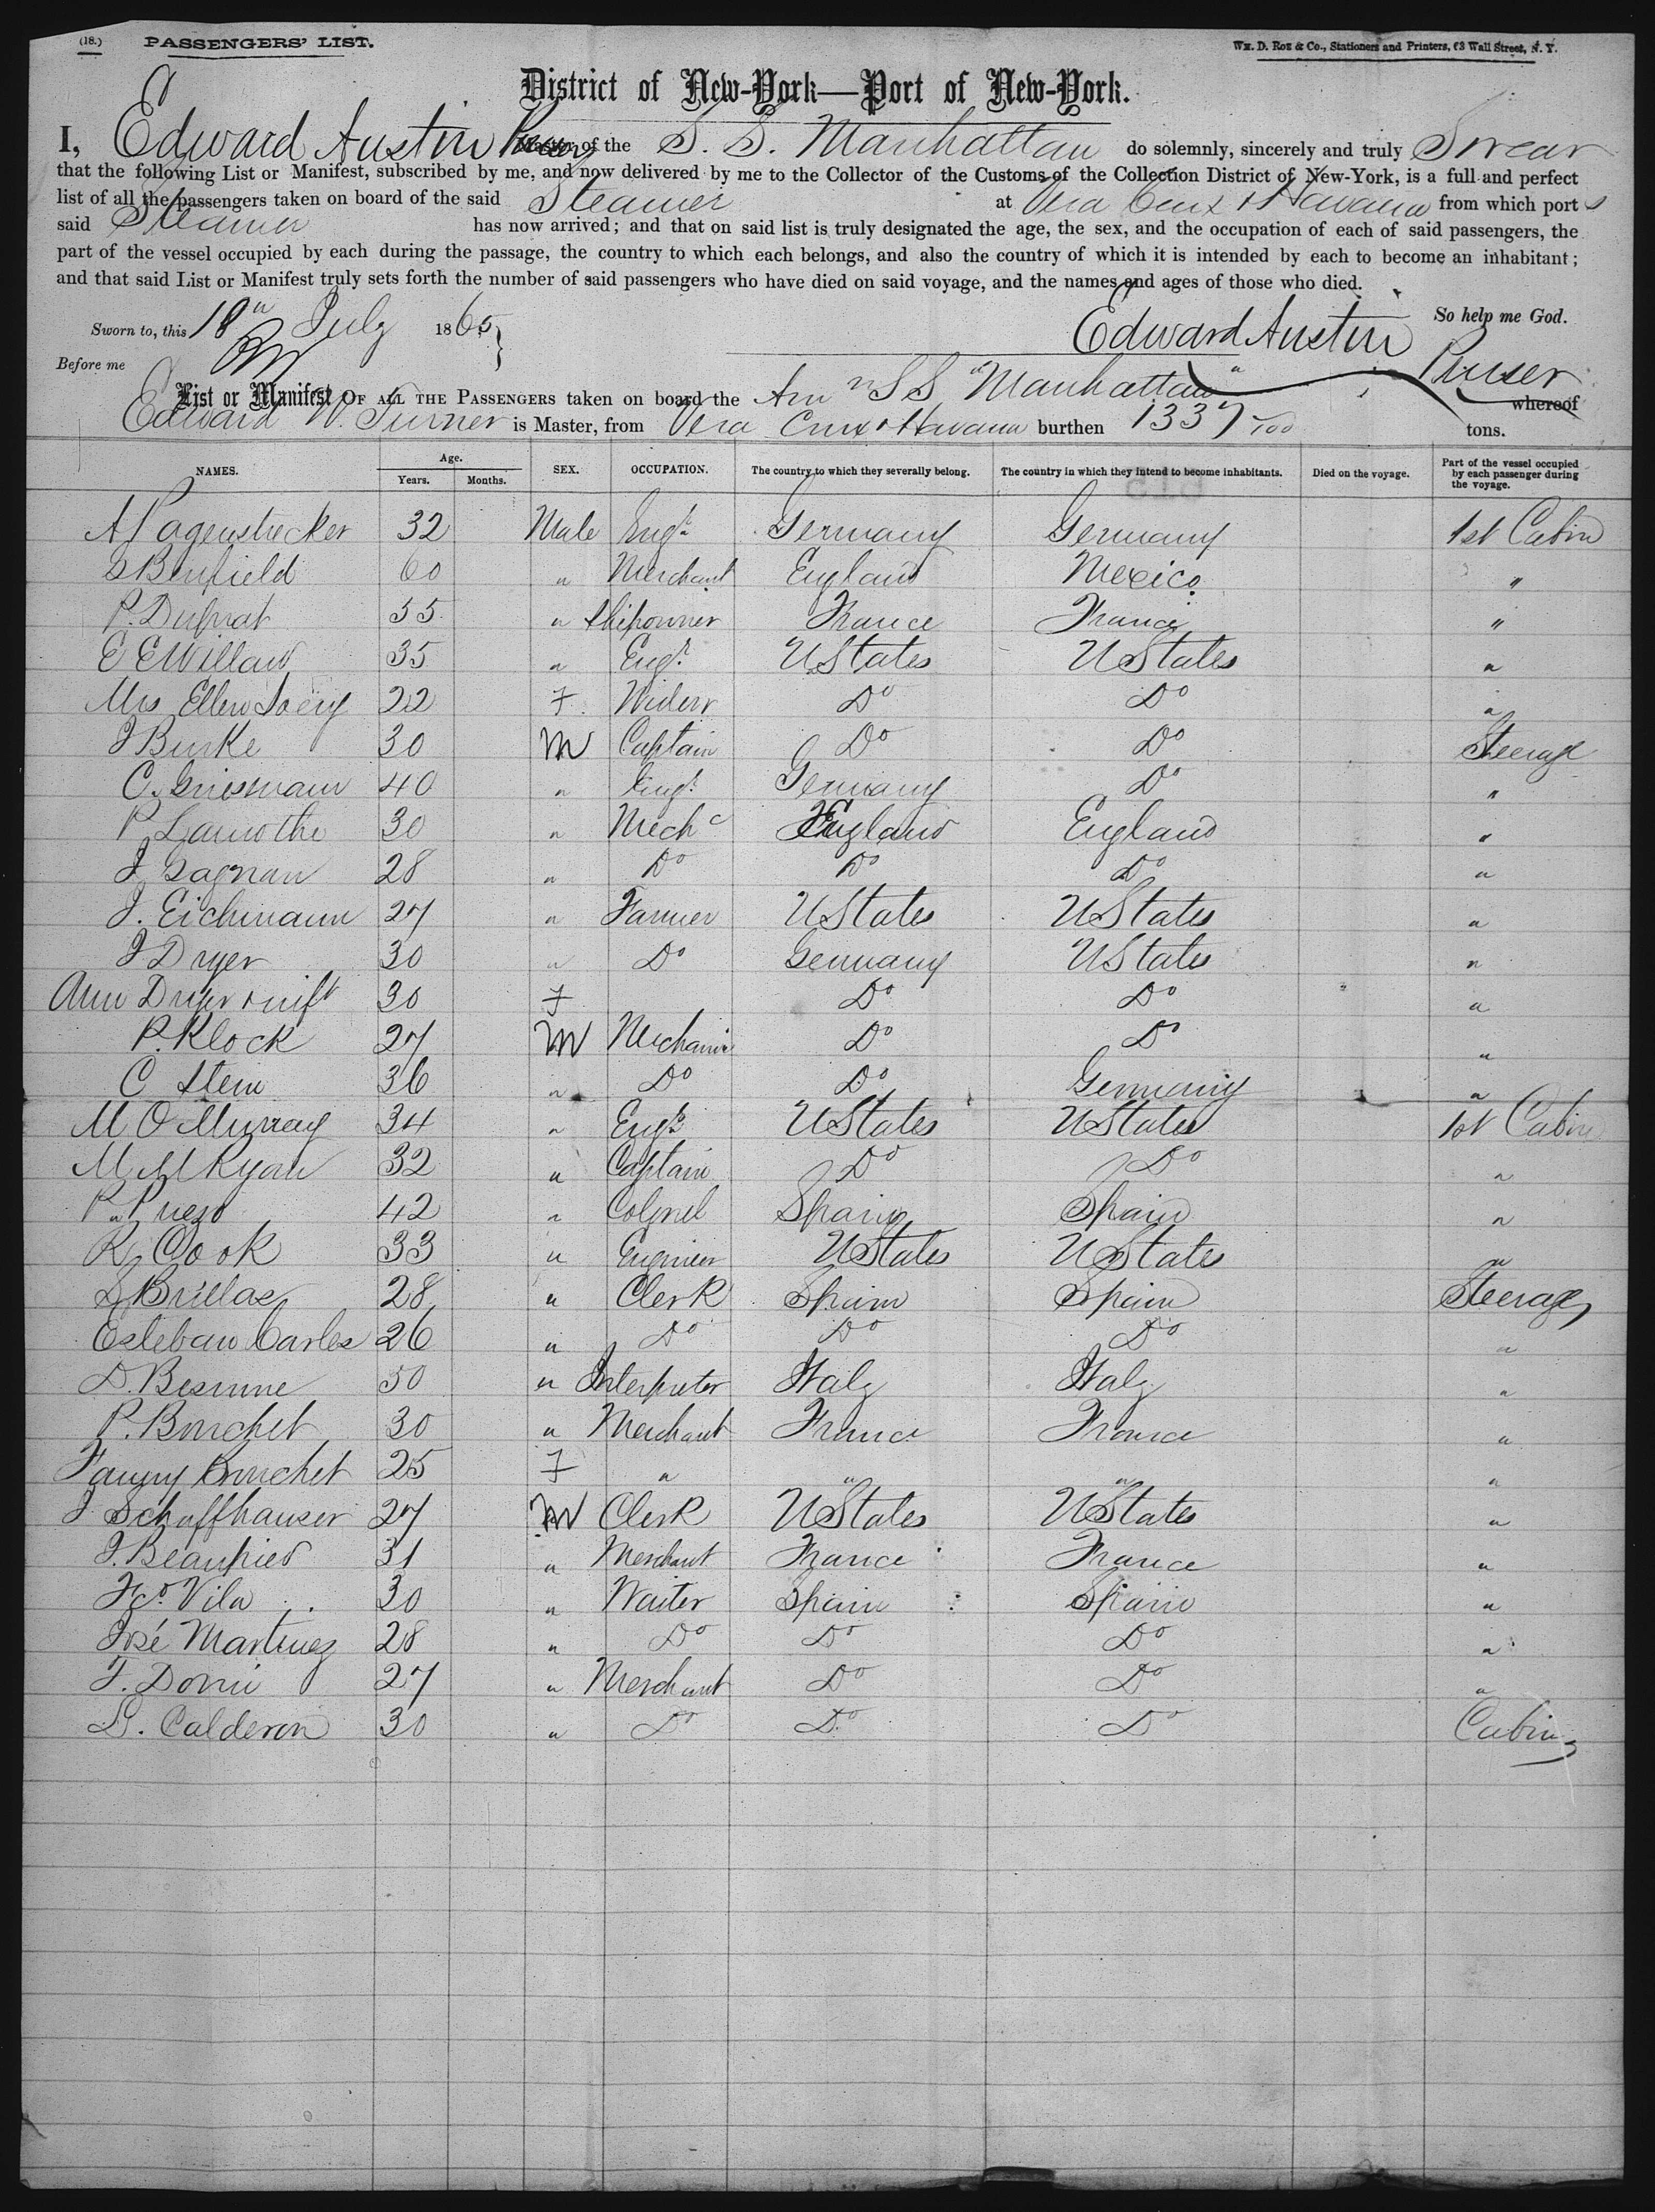 (18.) PASSENGERS' LIST. Wm. D. Roe & Co., Stationers and Printers, 63 Wall Street, N. Y.
District of New-York—Port of New-York.
I, Edward Austin Purser Master of the S. S. Manhattan do solemnly, sincerely and truly Swear
that the following List or Manifest, subscribed by me, and now delivered by me to the Collector of the Customs of the Collection District of New-York, is a full and perfect
list of all the passengers taken on board of the said Steamer at Vera Cruz & Havana from which ports
said Steamer has now arrived; and that on said list is truly designated the age, the sex, and the occupation of each of said passengers, the
part of the vessel occupied by each during the passage, the country to which each belongs, and also the country of which it is intended by each to become an inhabitant;
and that said List or Manifest truly sets forth the number of said passengers who have died on said voyage, and the names and ages of those who died.
So help me God.
Sworn to, this 18th July 1865
Edward Austin
Before me
Purser
List or Manifest OF ALL THE PASSENGERS taken on board the Amn SS "Manhattan" whereof
Edward W. Turner is Master, from Vera Cruz & Havana burthen 1337 /100 tons.
NAMES. Age. Years. Months. SEX. OCCUPATION. The country to which they severally belong. The country in which they intend to become inhabitants. Died on the voyage. Part of the vessel occupied by each passenger during the voyage.
A Pagenstecker 32 Male Engr Germany Germany 1st Cabin
S Benfield 60 " Merchant England Mexico "
P. Duprat 55 " Shipowner France France "
E E Willard 35 " Engr. U States U States "
Mrs Ellen 22 F. Widow Do Do "
J Burke 30 M Captain Do Do Steerage
C. Griesmann 40 " Engr. Germany Do "
P Lamothe 30 " Mechc England England "
J. Gagnan 28 " Do Do Do "
J. Eichmann 27 " Farmer U States U States "
J Dryer 30 " Do Germany U States "
Ann Dryer & inft 30 F Do Do "
P. Klock 27 M Mechanic Do Do "
C Stein 36 " Do Do Germany "
M O Murray 34 " Engr. U States U States 1st Cabin
M M Ryan 32 " Captain Do Do "
R. 42 " Colonel Spain Spain "
R Cook 33 " Engineer U States U States "
S Brillas 28 " Clerk Spain Spain Steerage
Esteban Carles 26 " Do Do Do "
D. 50 " Interpreter Italy Italy "
P. Bouchet 30 " Merchant France France "
Fanny Bouchet 25 F " " " "
J Schaffhauser 27 M Clerk U States U States "
J. Beaupied 31 " Merchant France France "
Fco. Vila 30 " Waiter Spain Spain "
José Martinez 28 " Do Do Do "
F. 27 " Merchant Do Do "
D. Calderon 30 " Do Do Do Cabin